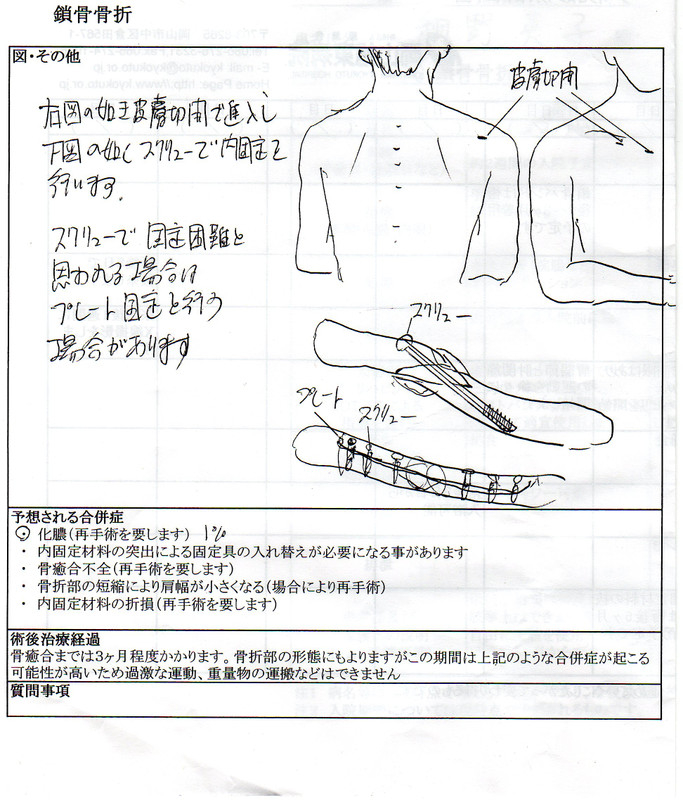 鎖骨骨折
図・その他
右図の如き皮膚切開で進入し
下図の如くスクリューで内固定を
行います。
スクリューで固定困難と
思われる場合は
プレート固定を行う
場合があります
皮膚切開
スクリュー
プレート
スクリュー
予想される合併症
・ 化膿(再手術を要します) 1%
・ 内固定材料の突出による固定具の入れ替えが必要になる事があります
・ 骨癒合不全(再手術を要します)
・ 骨折部の短縮により肩幅が小さくなる(場合により再手術)
・ 内固定材料の折損(再手術を要します)
術後治療経過
骨癒合までは3ヶ月程度かかります。骨折部の形態にもよりますがこの期間は上記のような合併症が起こる
可能性が高いため過激な運動、重量物の運搬などはできません
質問事項